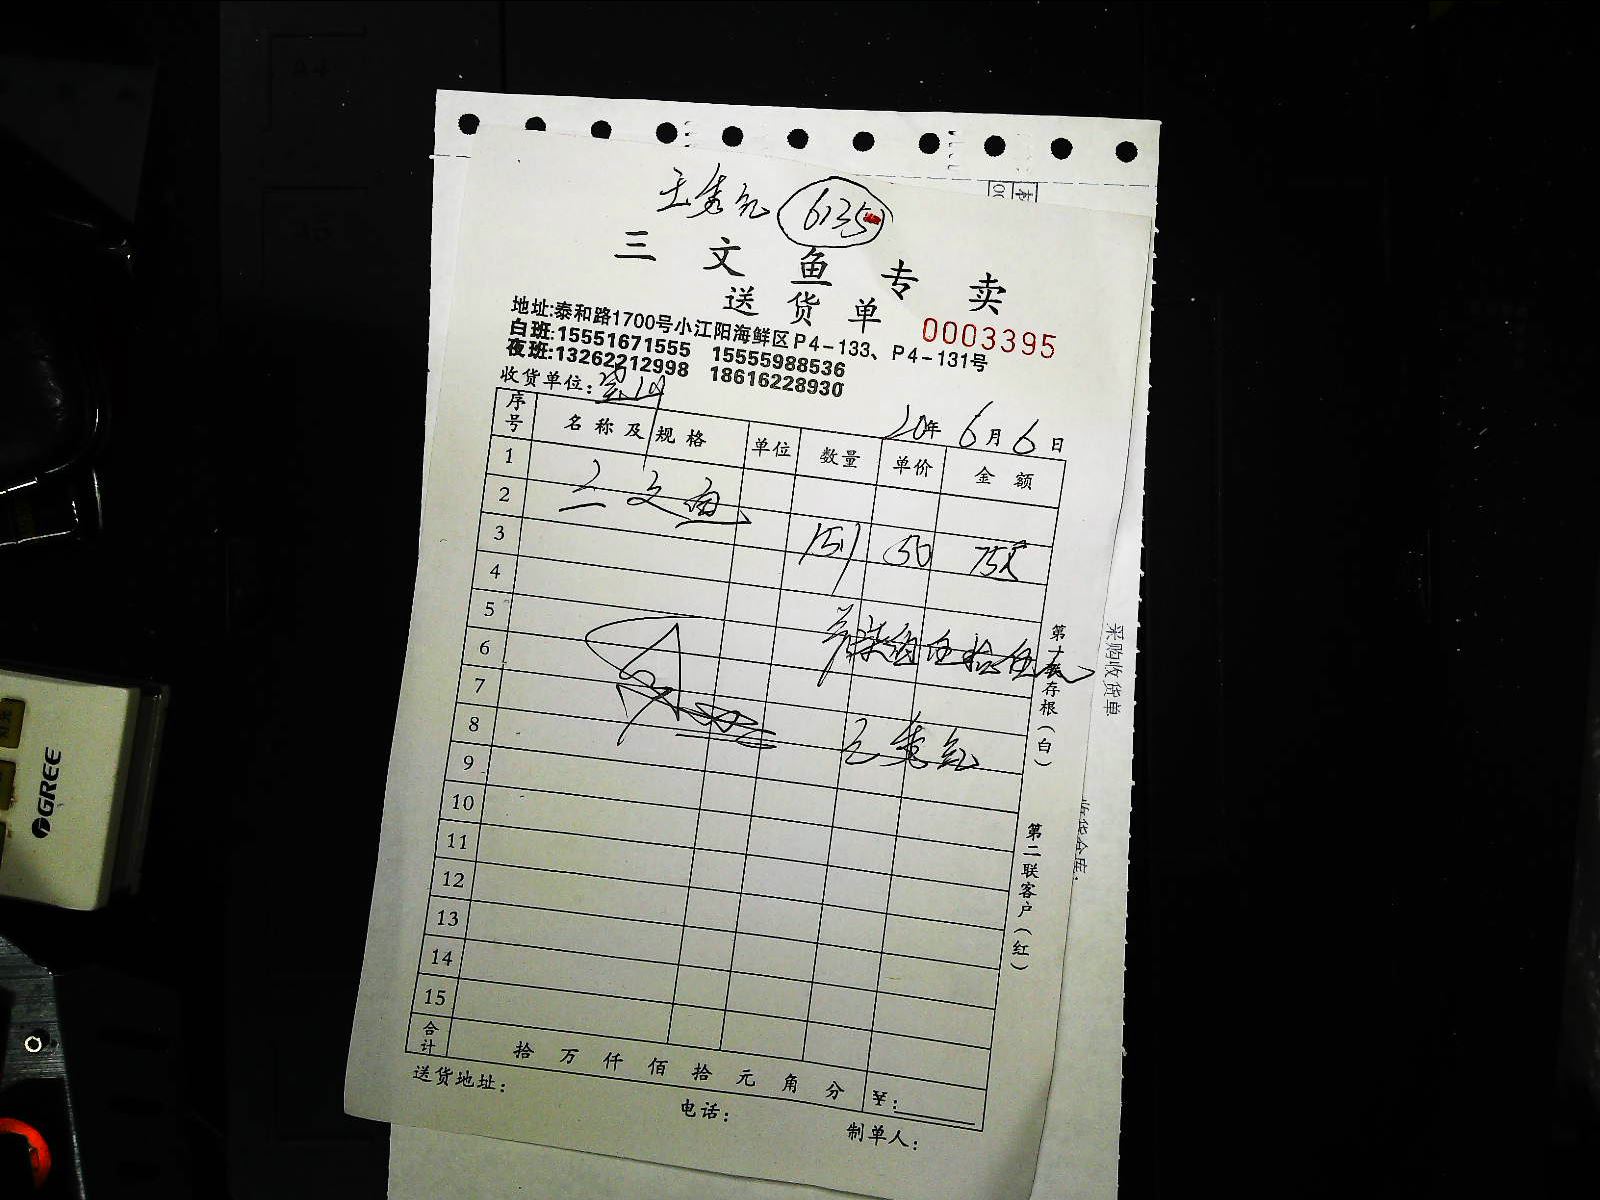 王秀红 6135
三文鱼专卖
送货单 0003395
地址:泰和路1700号小江阳海鲜区P4-133、P4-131号
白班:15551671555 15555988536
夜班:13262212998 18616228930
收货单位:
20年6月6日
序号 名称及规格 单位 数量 单价 金额
1
2 三文鱼 15.1 50 755
3
4
5
6 柒佰伍拾伍元
7
8 王秀红
9
10
11
12
13
14
15
合计 拾万仟佰拾元角分 ¥:
送货地址: 电话: 制单人:
第一联存根(白)
第二联客户(红)
采购收货单
GREE